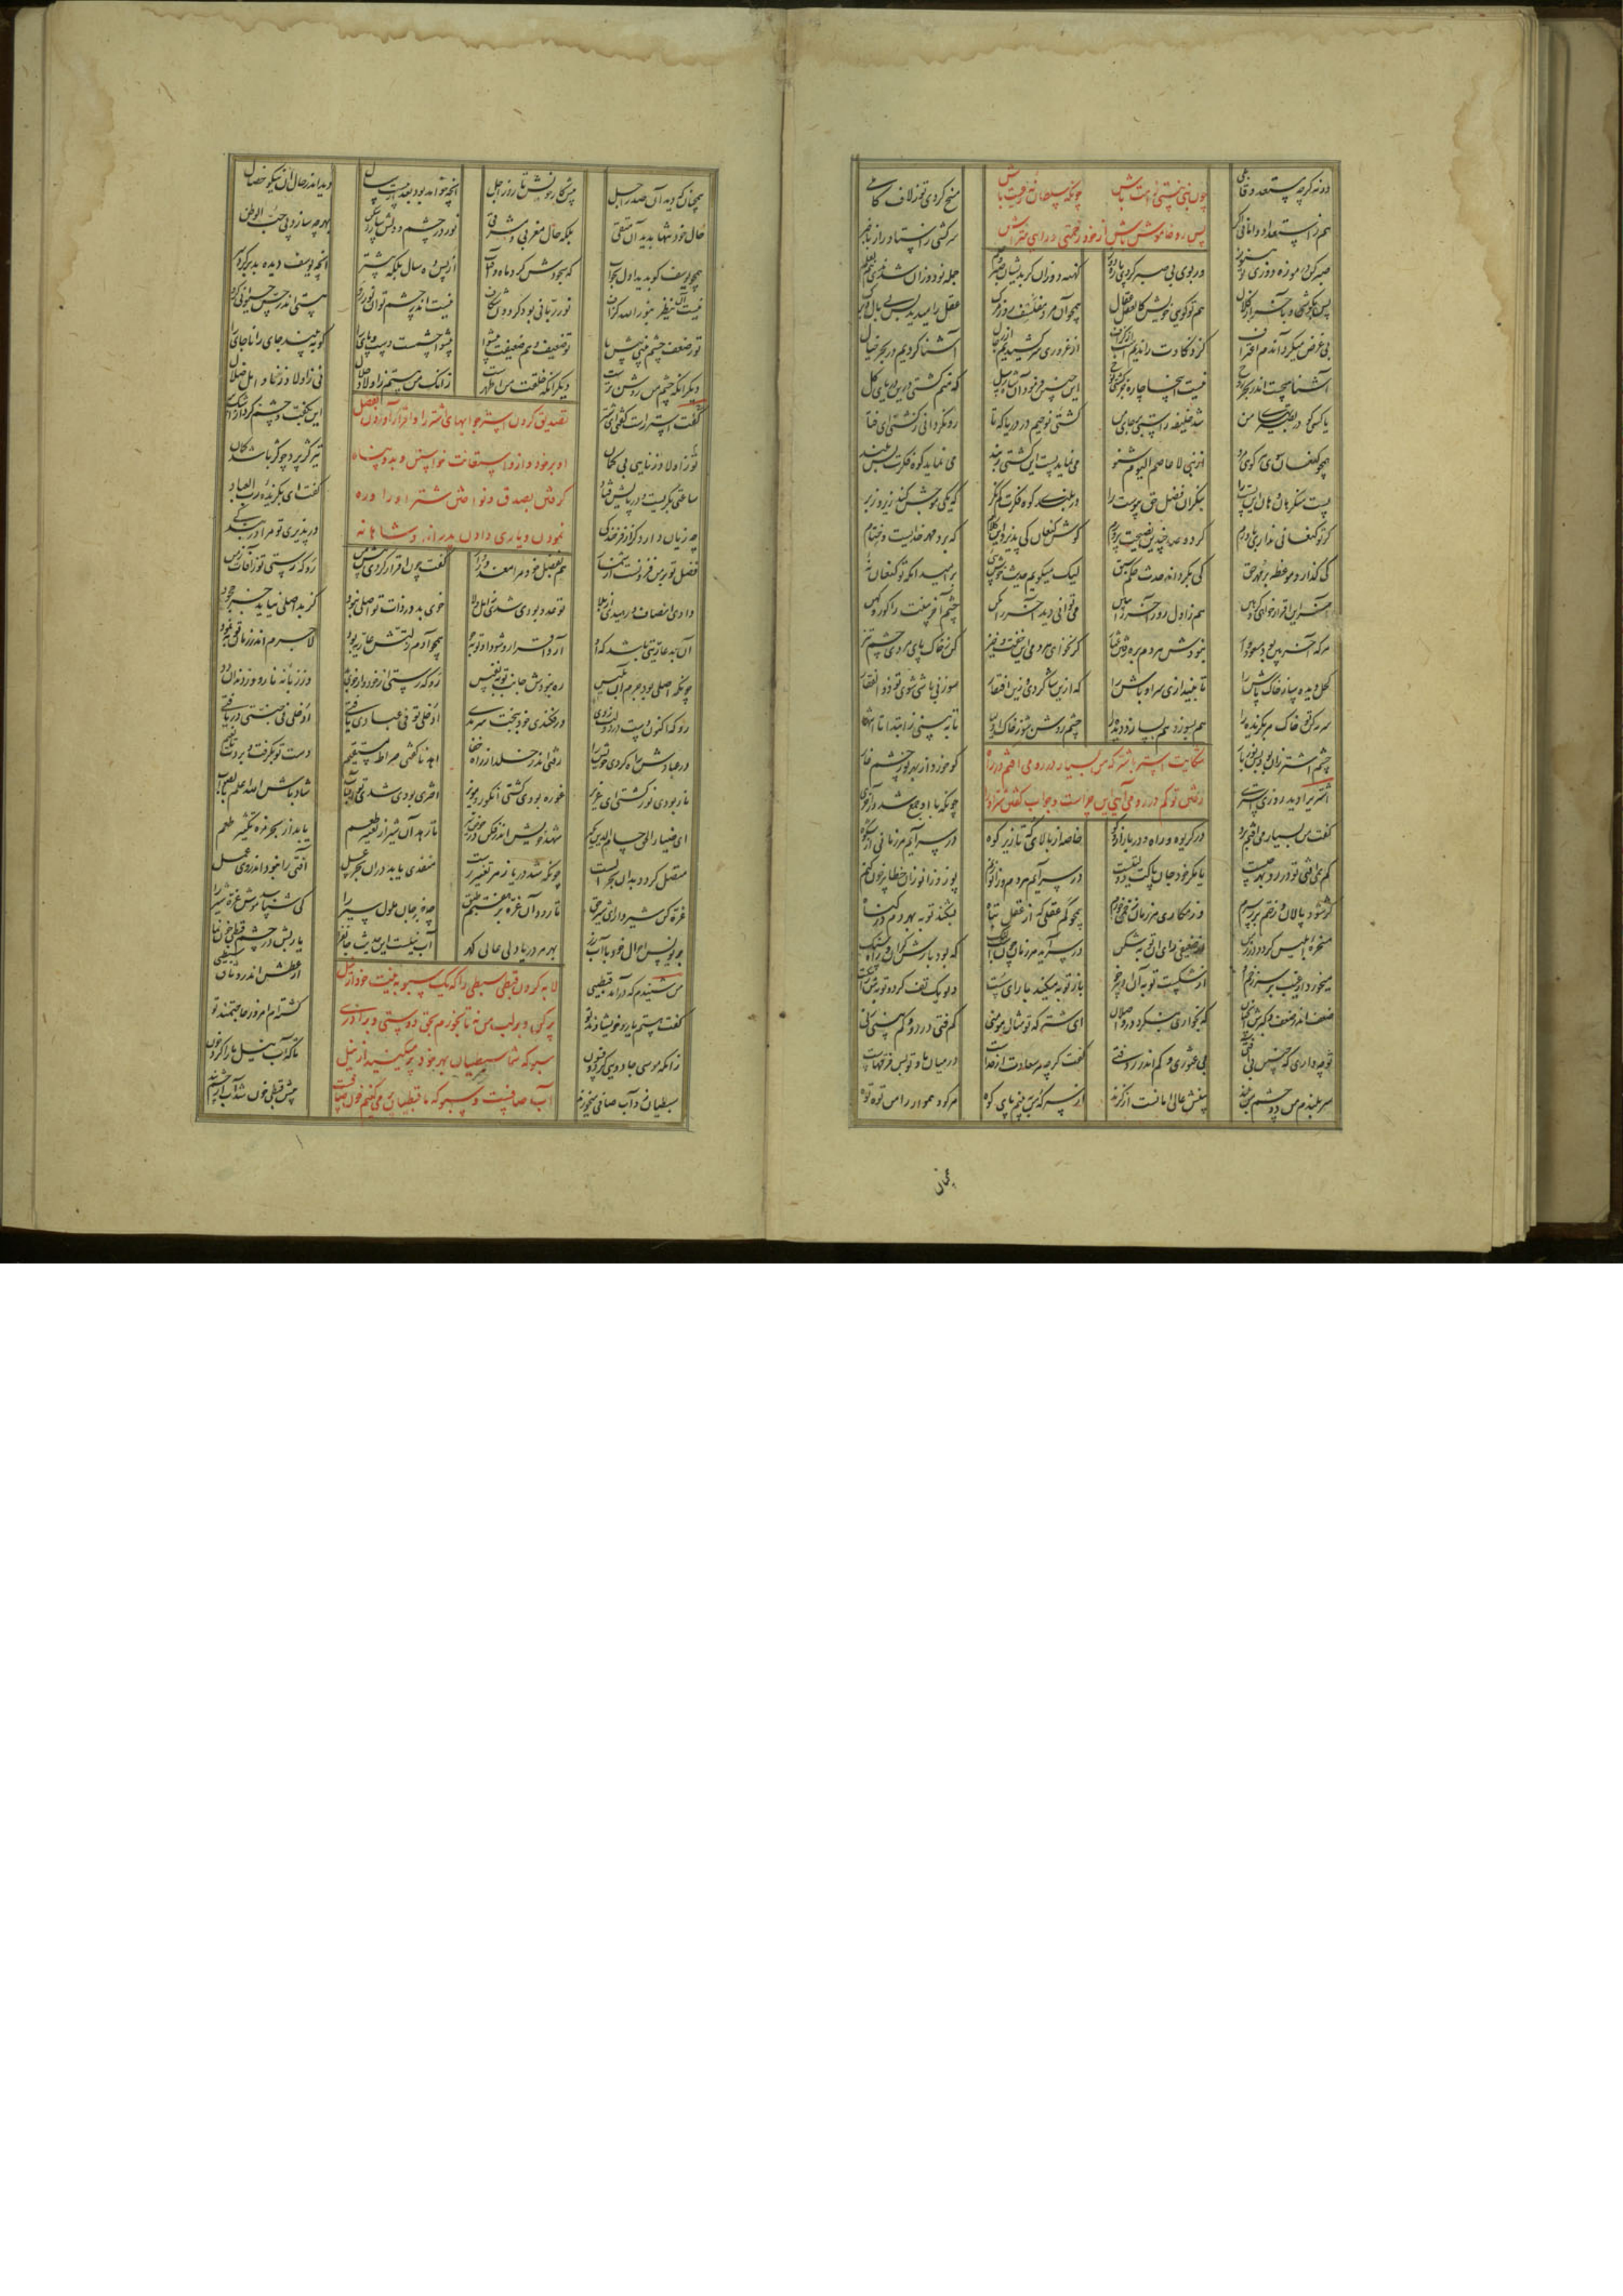 ورنه گرچه مستعد و قابلی چون نبی نیستی ز امت باش چونکه سلطان نه رعیت باش مسخ گردی تو ز لاف کاملی
هم ز استعداد وامانی اگر پس رو خاموش باش از خود زحمتی و رای متراش سرکشی ز استاد راز باخبر
صبر کن در موزه دوزی تو هنوز ور بوی بی صبر گردی پاره دوز کهنه دوزان گر بدیشان صبر و حلم جمله نودوزان شدندی هم بعلم
پس بکوشی و بآخر از کلال هم تو گویی خویش کالعقل عقال همچو آن مرد مفلسف روز مرگ عقل را میدید بس بی بال و برگ
بی غرض میکرد آندم اعتراف کز ذکاوت راندیم اسب از گزاف از غروری سر کشیدیم از رجال آشنا کردیم در بحر خیال
آشنا هیچست اندر بحر روح نیست اینجا چاره جز کشتی نوح این چنین فرمود آن شاه رسل که منم کشتی درین دریای کل
یا کسی کو در بصیرتهای من شد خلیفه راستی بر جای من کشتی نوحیم در دریا که تا رو نگردانی ز کشتی ای فتا
همچو کنعان سوی هر کوهی مرو از نبی لا عاصم الیوم شنو می نماید پست این کشتی ز بند می نماید کوه فکرت بس بلند
پست منگر هان و هان این پست را بنگر آن فضل حق پیوست را در بلندی کوه فکرت کم نگر که یکی موجش کند زیر و زبر
گر تو کنعانی نداری باورم گر دو صد چندین نصیحت پرورم گوش کنعان کی پذیرد این کلام که برو مهر خدایست و ختام
کی گذارد موعظه بر مهر حق کی بگرداند حدث حکم سبق لیک میگویم حدیث خوش پیی بر امید آنکه تو کنعان نه
آخر این اقرار خواهی کرد هین هم ز اول روز آخر را ببین می توانی دید آخر را مکن چشم آخربینت را کور کهن
هرکه آخربین بود مسعودوار نبودش هر دم بره رفتن عثار گر نخواهی هر دمی این خفت و خیز کن ز خاک پای مردی چشم تیز
کحل دیده ساز خاک پاش را تا بیندازی سر اوباش را که ازین شاگردی و زین افتقار سوزنی باشی شوی تو ذوالفقار
سرمه کن تو خاک هر بگزیده را هم بسوزد هم بسازد دیده را چشم روشن شو ز خاک اولیا تا ببینی ز ابتدا تا انتها
چشم اشتر زان بود بس نوربار شکایت استر با شتر که من بسیار در رو می افتم در راه کو خورد از بهر نور چشم خار
اشتری را دید روزی استری رفتن تو کم در رو می آیی این چراست و جواب گفتن شتر او را چونکه با او جمع شد در آخوری
گفت من بسیار می افتم برو در گریوه و راه و در بازار و کو خاصه از بالای که تا زیر کوه در سر آیم هر زمانی از شکوه
کم همی افتی تو در رو بهر چیست یا مگر خود جان پاکت دولتیست در سر آیم هر دم و زانو زنم پوز و زانو زان خطا پرخون کنم
کژ شود پالان و رختم بر سرم وز مکاری هر زمان زخمی خورم همچو کم عقلی که از عقل تباه بشکند توبه بهر دم در گناه
مسخره ابلیس گردد در زمن از ضعیفی رای آن توبه شکن در سر آید هر زمان چون اسب لنگ که بود بارش گران و راه سنگ
میخورد از غیب بر سر زخم او از شکست توبه آن ادبارخو باز توبه میکند با رای سست دیو یک تف کرد و توبه ش را گسست
ضعف اندر ضعف و کبرش آنچنان که بخواری بنگرد در واصلان ای شتر که تو مثال مومنی کم فتی در رو و کم بینی زنی
تو چه داری که چنین بی آفتی بی عثاری و کم اندر رو فتی گفت گرچه هر سعادت از خداست در میان ما و تو بس فرقهاست
سر بلندم من دو چشم من بلند بینش عالی امانست از گزند از سر که من ببینم پای کوه هر گو و هموار را من توه توه
همچنان
همچنان که دید آن صدر اجل پیش کار خویش تا روز اجل آنچه خواهد بود بعد بیست سال دید اندر حال آن نیکو خصال
حال خود تنها ندید آن متقی بلکه حال مغربی و مشرقی نور در چشم و دلش سازد سکن بهر چه سازد پی حب الوطن
همچو یوسف کو بدید اول بخواب که سجودش کرد ماه و آفتاب از پس ده سال بلکه بیشتر آنچه یوسف دیده بد بر کرد سر
نیست آن ینظر بنور الله گزاف نور ربانی بود گردون شکاف نیست اندر چشم تو آن نور رو هستی اندر حس حیوانی گرو
تو ز ضعف چشم بینی پیش پا تو ضعیف و هم ضعیفت پیشوا پیشوا چشمست دست و پای را کو ببیند جای را ناجای را
دیگر آنکه چشم من روشن ترست دیگر آنکه خلقت من اطهرست زانک من هستم ز اولاد حلال نی ز اولاد زنا و اهل ضلال
گفت استر راست گفتی ای شتر تصدیق کردن استر جوابهای شتر را و اقرار آوردن بفضل این بگفت و چشم کرد از اشک پر
تو ز اولاد زنایی بی گمان او بر خود و ازو استعانت خواستن و بدو پناه تیر کژ پرد چو کژ باشد کمان
ساعتی بگریست و در پایش فتاد گرفتن بصدق و نواختن شتر او را و ره گفت ای بگزیده رب العباد
چه زیان دارد گر از فرخندگی نمودن و یاری دادن پدرانه و شاهانه در پذیری تو مرا در بندگی
فضل تو بر من فزونست هم بفضل خود مرا معذور دار گفت چون اقرار کردی پیش من رو که رستی تو ز آفات زمن
دادی انصاف و رهیدی از بلا تو عدو بودی شدی ز اهل ولا خوی بد در ذات تو اصلی نبود کز بد اصلی نیاید جز جحود
آن بد عاریتی باشد که او آرد اقرار و شود او توبه جو همچو آدم زلتش عاریه بود لاجرم اندر زمان توبه نمود
چونکه اصلی بود جرم آن بلیس ره نبودش جانب توبه نفیس رو که رستی از خود و از خوی بد وز زبانه نار و وز دندان دد
رو که اکنون دست در دولت زدی در فکندی خود ببخت سرمدی ادخلی تو فی عبادی یافتی ادخلی فی جنتی دریافتی
در عبادش راه کردی خویش را رفتی اندر خلد از راه خفا اهدنا گفتی صراط مستقیم دست تو بگرفت و بردت تا نعیم
نار بودی نور گشتی ای عزیز غوره بودی گشتی انگور و مویز اختری بودی شدی تو آفتاب شاد باش الله اعلم بالصواب
ای ضیاء الحق حسام الدین بگیر شهد خویش اندر فکن در حوض شیر تا رهد آن شیر از تغییر طعم یابد از بحر مزه تکثیر طعم
متصل گردد بدان بحر الست چونکه شد دریا ز هر تغییر رست منفذی یابد در آن بحر عسل آفتی را نبود اندر وی عمل
غره کن شیروار ای شیر حق تا رود آن غره بر هفتم طبق چه خبر جان ملول سیر را کی شناسد موش غره شیر را
بنویس احوال خود با آب زر بهر هر دریادلی عالی گهر آب نیلست این حدیث جانفزا یا ربش در چشم قبطی خون نما
من شنیدم که درآمد قبطیی لابه کردن قبطی سبطی را که یک سبو به نیت خود از نیل از عطش اندر وثاق سبطیی
گفت هستم یار و خویشاوند تو پر کن و بر لب من نه تا بخورم بحق دوستی و برادری گشته ام امروز حاجتمند تو
زانکه موسی جادویی کرد و فسون سبو که شما سبطیان بهر خود پر میکنید از نیل تا که آب نیل ما را کرد خون
سبطیان زو آب صافی میخورند آب صافیست و سبو که ما قبطیان پر می کنیم خون صافست پیش قبطی خون شد آب از چشم بند